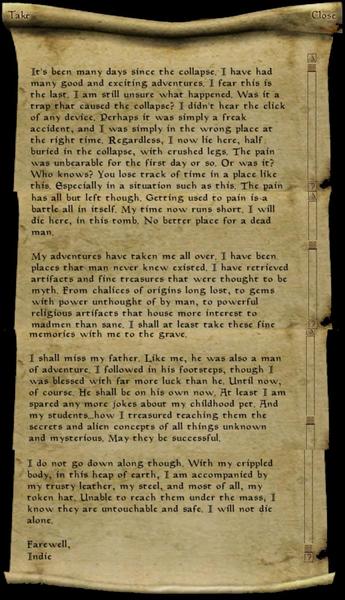 Take Close
It's been many days since the collapse. I have had
many good and exciting adventures. I fear this is
the last. I am still unsure what happened. Was it a
trap that caused the collapse? I didn't hear the click
of any device. Perhaps it was simply a freak
accident, and I was simply in the wrong place at
the right time. Regardless, I now lie here, half
buried in the collapse, with crushed legs. The pain
was unbearable for the first day or so. Or was it?
Who knows? You lose track of time in a place like
this. Especially in a situation such as this. The pain
has all but left though. Getting used to pain is a
battle all in itself. My time now runs short. I will
die here, in this tomb. No better place for a dead
man.
My adventures have taken me all over. I have been
places that man never knew existed. I have retrieved
artifacts and fine treasures that were thought to be
myth. From chalices of origins long lost, to gems
with power unthought of by man, to powerful
religious artifacts that house more interest to
madmen than sane. I shall at least take these fine
memories with me to the grave.
I shall miss my father. Like me, he was also a man
of adventure. I followed in his footsteps, though I
was blessed with far more luck than he. Until now,
of course. He shall be on his own now. At least I am
spared any more jokes about my childhood pet. And
my students...how I treasured teaching them the
secrets and alien concepts of all things unknown
and mysterious. May they be successful.
I do not go down along though. With my crippled
body, in this heap of earth, I am accompanied by
my trusty leather, my steel, and most of all, my
token hat. Unable to reach them under the mass, I
know they are untouchable and safe. I will not die
alone.
Farewell,
Indie